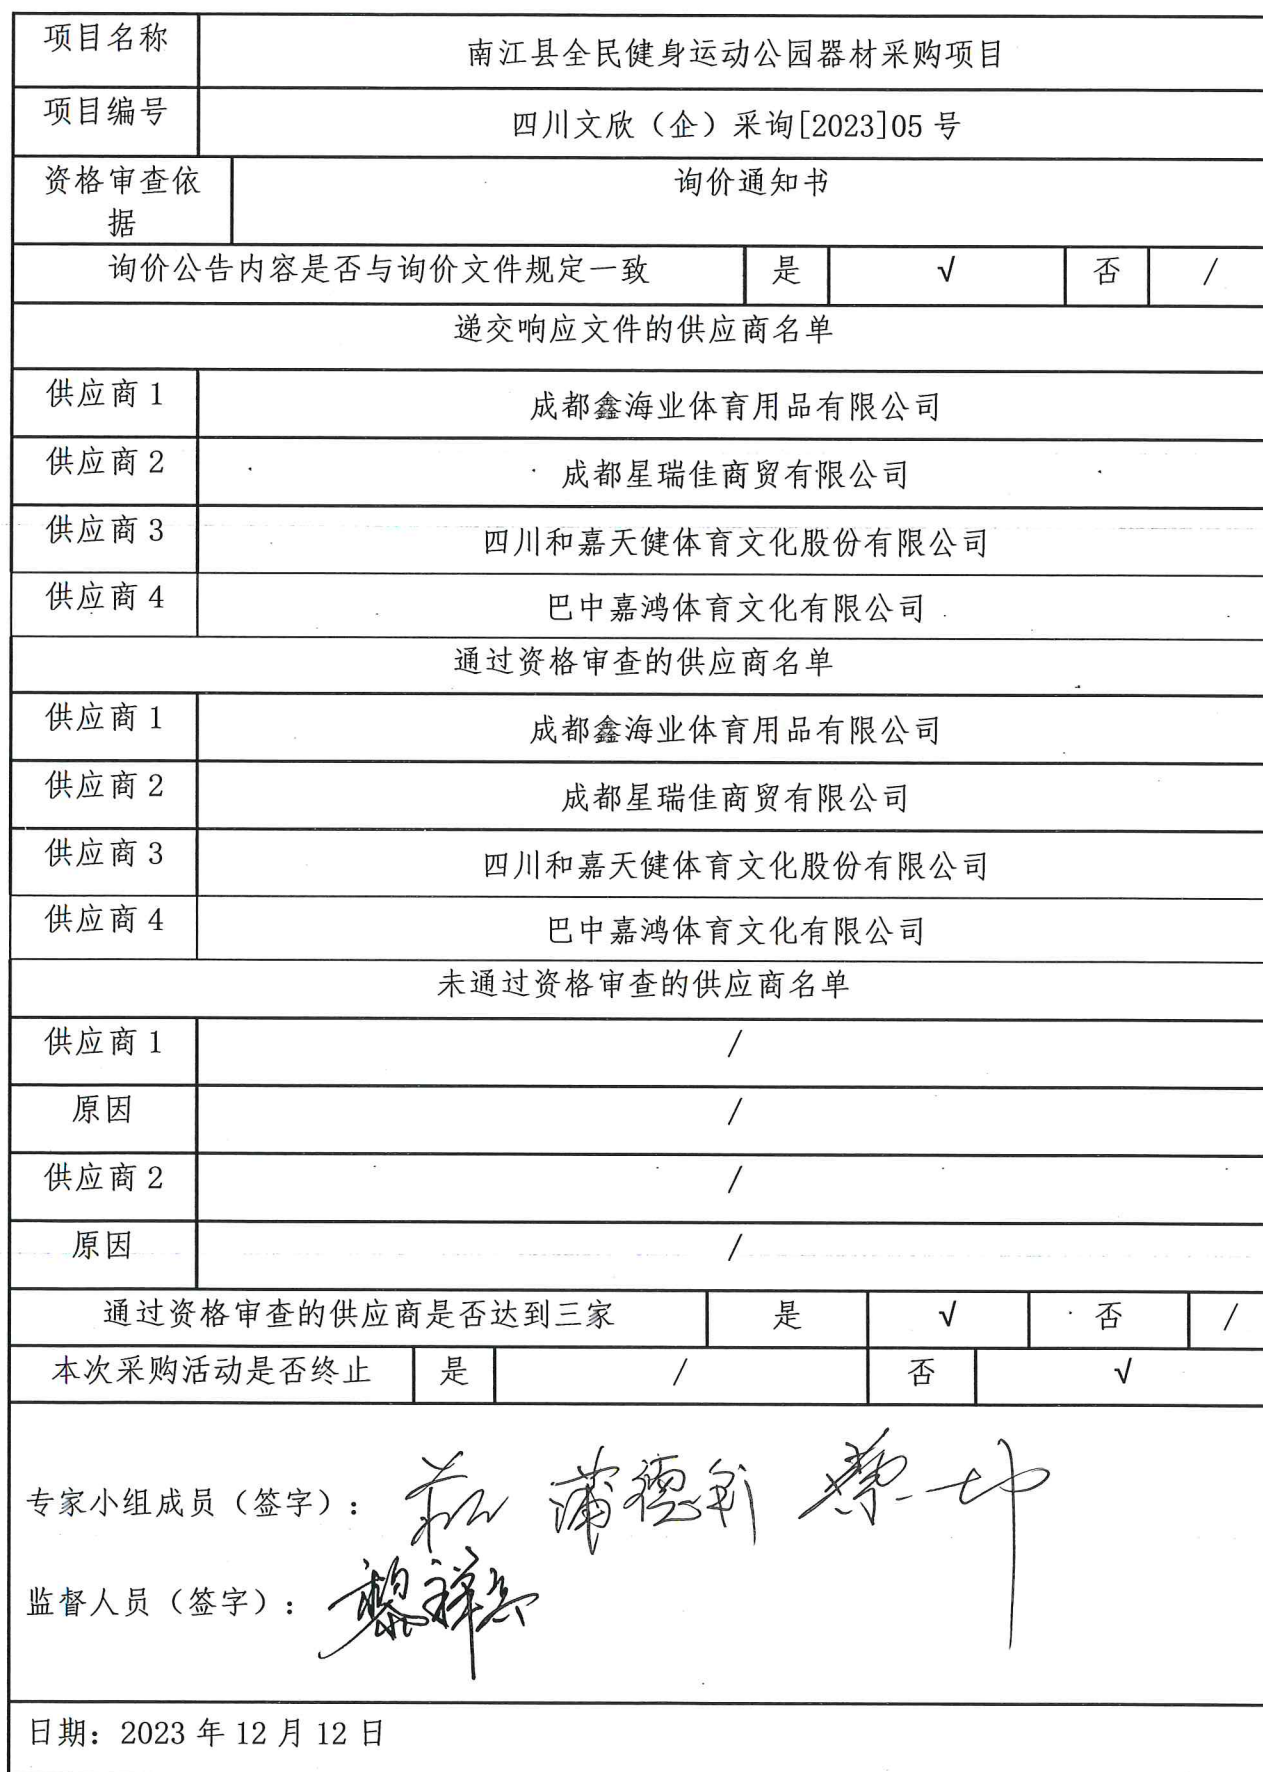 项目名称 南江县全民健身运动公园器材采购项目
项目编号 四川文欣（企）采询[2023]05号
资格审查依
据
询价通知书
询价公告内容是否与询价文件规定一致 是 √ 否 /
递交响应文件的供应商名单
供应商1 成都鑫海业体育用品有限公司
供应商2 成都星瑞佳商贸有限公司
供应商3 四川和嘉天健体育文化股份有限公司
供应商4 巴中嘉鸿体育文化有限公司
通过资格审查的供应商名单
供应商1 成都鑫海业体育用品有限公司
供应商2 成都星瑞佳商贸有限公司
供应商3 四川和嘉天健体育文化股份有限公司
供应商4 巴中嘉鸿体育文化有限公司
未通过资格审查的供应商名单
供应商1 /
原因 /
供应商2 /
原因 /
通过资格审查的供应商是否达到三家 是 √ 否 /
本次采购活动是否终止 是 / 否 √
专家小组成员（签字）： 蒲德利
监督人员（签字）：
日期：2023年12月12日